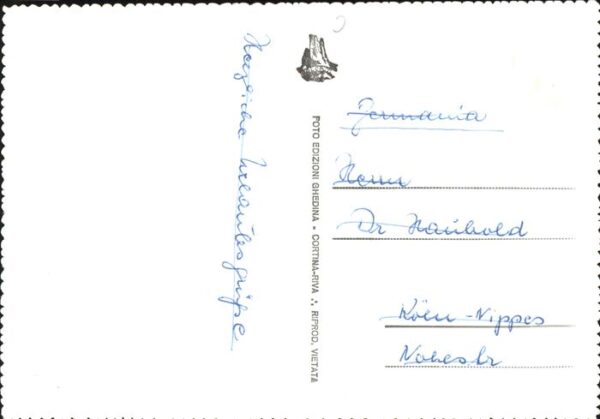 Herzliche Urlaubsgrüße
FOTO EDIZIONI GHEDINA • CORTINA-RIVA ∴ RIPROD. VIETATA
Germania
Herrn
Dr Haubold
Köln-Nippes